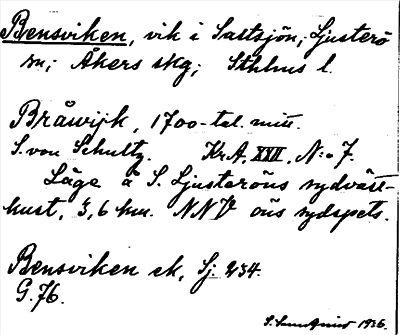 Bensviken, vik i Saltsjön, Ljusterö
sn; Åkers skg; Sthlms l.
Bråwijk, 1700-tal. mitt.
S. von Schultz. Kr.A, XXII, N:o 7.
Läge å S. Ljusteröns sydväst-
kust, 3,6 km. NNV öns sydspets.
Bensviken ek, Sj 234.
G. 76.
1926.